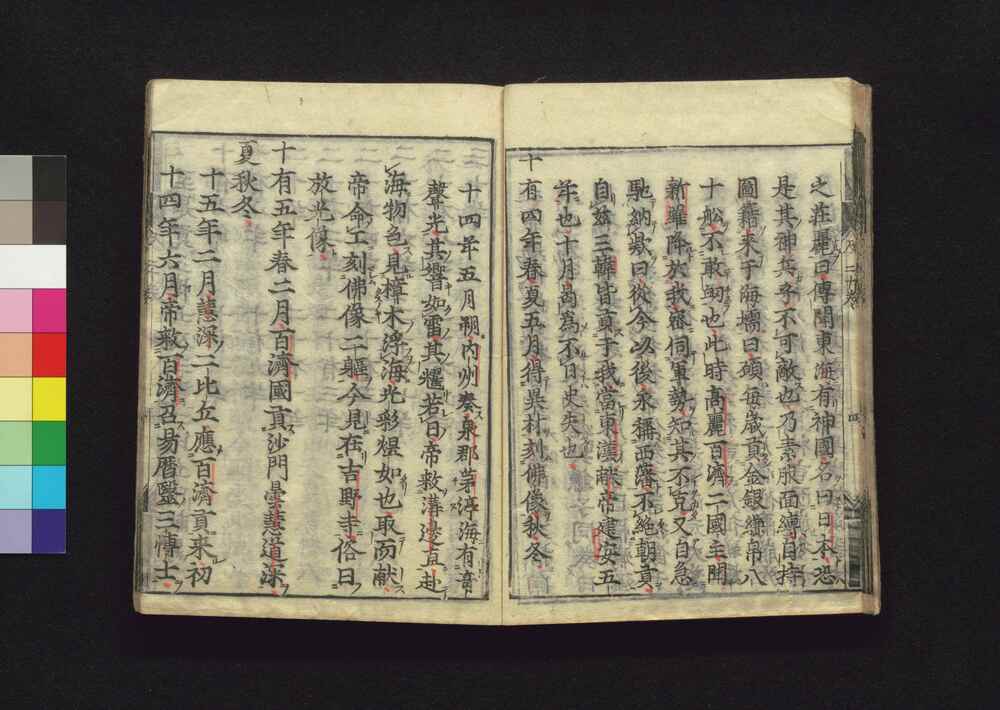 之荘麗曰傳聞東海有神國名曰日本恐
是其神兵乎不可敵也乃素服面縛自持
圖籍來于海壖曰願毎歳貢金銀縑帛八
十舩不敢闕也此時高麗百濟二國主聞
新羅降於我密伺軍勢知其不克又自急
馳納欵曰從今以後永稱西藩不絶朝貢
自茲三韓皆貢于我當東漢献帝建安五
年也十月爲不日史失也
十有四年春夏五月得異材刻佛像秋冬
十四年五月朔内州奏泉郡茅渟海有音
聲光其響如雷其耀若日帝敕溝邊直赴
海物色見樟木浮海光彩煜如也取而献
帝命工刻佛像二軀今見在吉野寺俗曰
放光像
十有五年春二月百濟國貢沙門曇慧道深
夏秋冬
十五年二月慧深二比丘應百濟貢來初
十四年六月帝敕百濟召易暦醫三博士